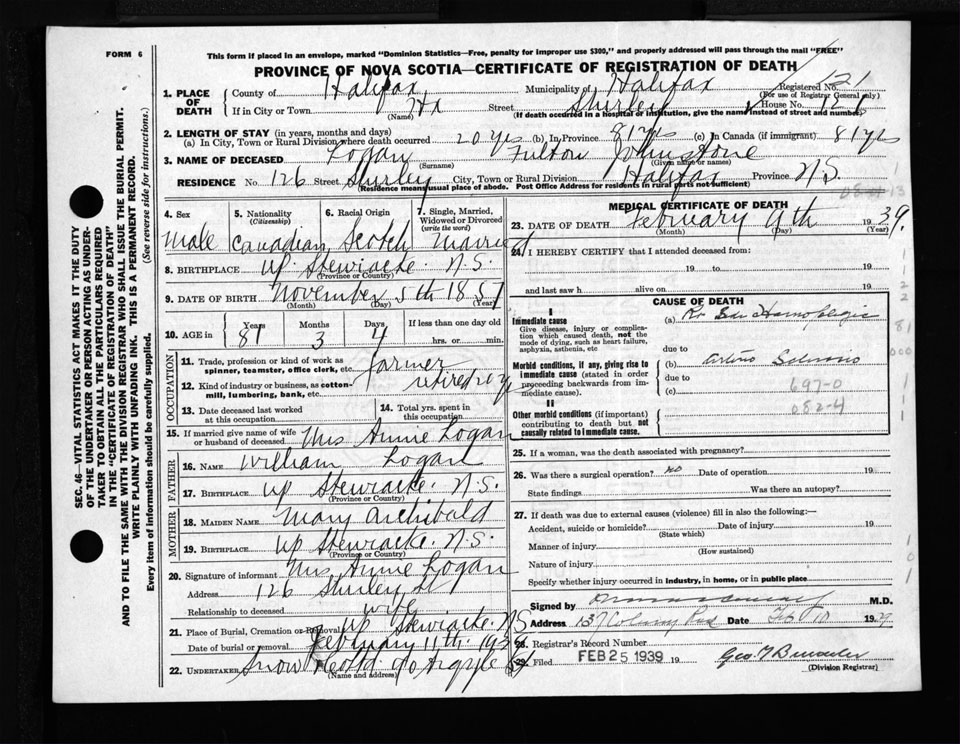 FORM 6
This form if placed in an envelope, marked "Dominion Statistics—Free, penalty for improper use $300," and properly addressed will pass through the mail "FREE"
PROVINCE OF NOVA SCOTIA—CERTIFICATE OF REGISTRATION OF DEATH
Registered No. 121
(For use of Registrar General only)
1. PLACE OF DEATH County of Halifax Municipality of Halifax
If in City or Town Hx Street Shirley House No. 126
(Name) (If death occurred in a hospital or institution, give the name instead of street and number)
2. LENGTH OF STAY (in years, months and days)
(a) In City, Town or Rural Division where death occurred 20 yrs (b) In Province 81 yrs (c) In Canada (if immigrant) 81 yrs
3. NAME OF DECEASED Logan Fulton Johnstone
(Surname) (Given name or names)
RESIDENCE No. 126 Street Shirley City, Town or Rural Division Halifax Province N.S.
(Residence means usual place of abode. Post Office Address for residents in rural parts not sufficient)
4. Sex
Male
5. Nationality
(Citizenship)
Canadian
6. Racial Origin
Scotch
7. Single, Married, Widowed or Divorced
(write the word)
Married
8. BIRTHPLACE Up. Stewiacke. N.S.
(Province or Country)
9. DATE OF BIRTH November 5th 1857
(Month) (Day) (Year)
10. AGE in Years Months Days If less than one day old
81 3 4 hrs. or min.
OCCUPATION
11. Trade, profession or kind of work as spinner, teamster, office clerk, etc. farmer
12. Kind of industry or business, as cotton-mill, lumbering, bank, etc. retired
13. Date deceased last worked at this occupation
14. Total yrs. spent in this occupation
15. If married give name of wife or husband of deceased Mrs Annie Logan
FATHER
16. NAME William Logan
17. BIRTHPLACE Up Stewiacke. N.S.
(Province or Country)
MOTHER
18. MAIDEN NAME Mary Archibald
19. BIRTHPLACE Up Stewiacke. N.S.
(Province or Country)
20. Signature of informant Mrs Annie Logan
Address 126 Shirley St
Relationship to deceased wife
21. Place of Burial, Cremation or Removal Up Stewiacke. N.S
Date of burial or removal February 11th. 1939
22. UNDERTAKER Snow & Co Ltd. 90 Argyle St
(Name and address)
MEDICAL CERTIFICATE OF DEATH
23. DATE OF DEATH February 9th 1939.
(Month) (Day) (Year)
24. I HEREBY CERTIFY that I attended deceased from:
19 to 19
and last saw h alive on 19
CAUSE OF DEATH
I
Immediate cause
Give disease, injury or complication which caused death, not the mode of dying, such as heart failure, asphyxia, asthenia, etc
(a)
due to
Morbid conditions, if any, giving rise to immediate cause (stated in order proceeding backwards from immediate).
(b)
due to
(c) 697-0
082-4
II
Other morbid conditions (if important) contributing to death but not causally related to immediate cause.
25. If a woman, was the death associated with pregnancy?
26. Was there a surgical operation? no Date of operation 19
State findings Was there an autopsy?
27. If death was due to external causes (violence) fill in also the following:—
Accident, suicide or homicide? Date of injury 19
(State which)
Manner of injury
(How sustained)
Nature of injury
Specify whether injury occurred in industry, in home, or in public place
Signed by M.D.
Address 137 Date Feb 10 1939
28. Registrar's Record Number
29. Filed FEB 25 1939 19
(Division Registrar)
SEC. 46—VITAL STATISTICS ACT MAKES IT THE DUTY
OF THE UNDERTAKER OR PERSON ACTING AS UNDERTAKER TO OBTAIN ALL THE PARTICULARS REQUIRED
IN THE "CERTIFICATE OF REGISTRATION OF DEATH"
AND TO FILE THE SAME WITH THE DIVISION REGISTRAR WHO SHALL ISSUE THE BURIAL PERMIT.
WRITE PLAINLY WITH UNFADING INK. THIS IS A PERMANENT RECORD.
Every item of information should be carefully supplied. (See reverse side for instructions.)